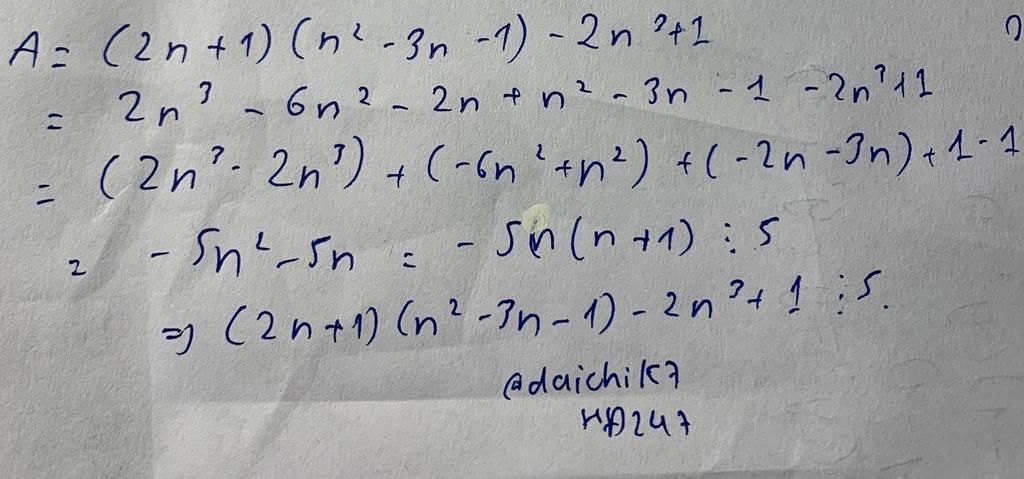 A = (2n + 1) (n² - 3n - 1) - 2n³ + 1
= 2n³ - 6n² - 2n + n² - 3n - 1 - 2n³ + 1
= (2n³ - 2n³) + (-6n² + n²) + (-2n - 3n) + 1 - 1
= - 5n² - 5n = - 5n (n + 1) ⋮ 5
⇒ (2n + 1) (n² - 3n - 1) - 2n³ + 1 ⋮ 5.
@daichik7
HĐ247